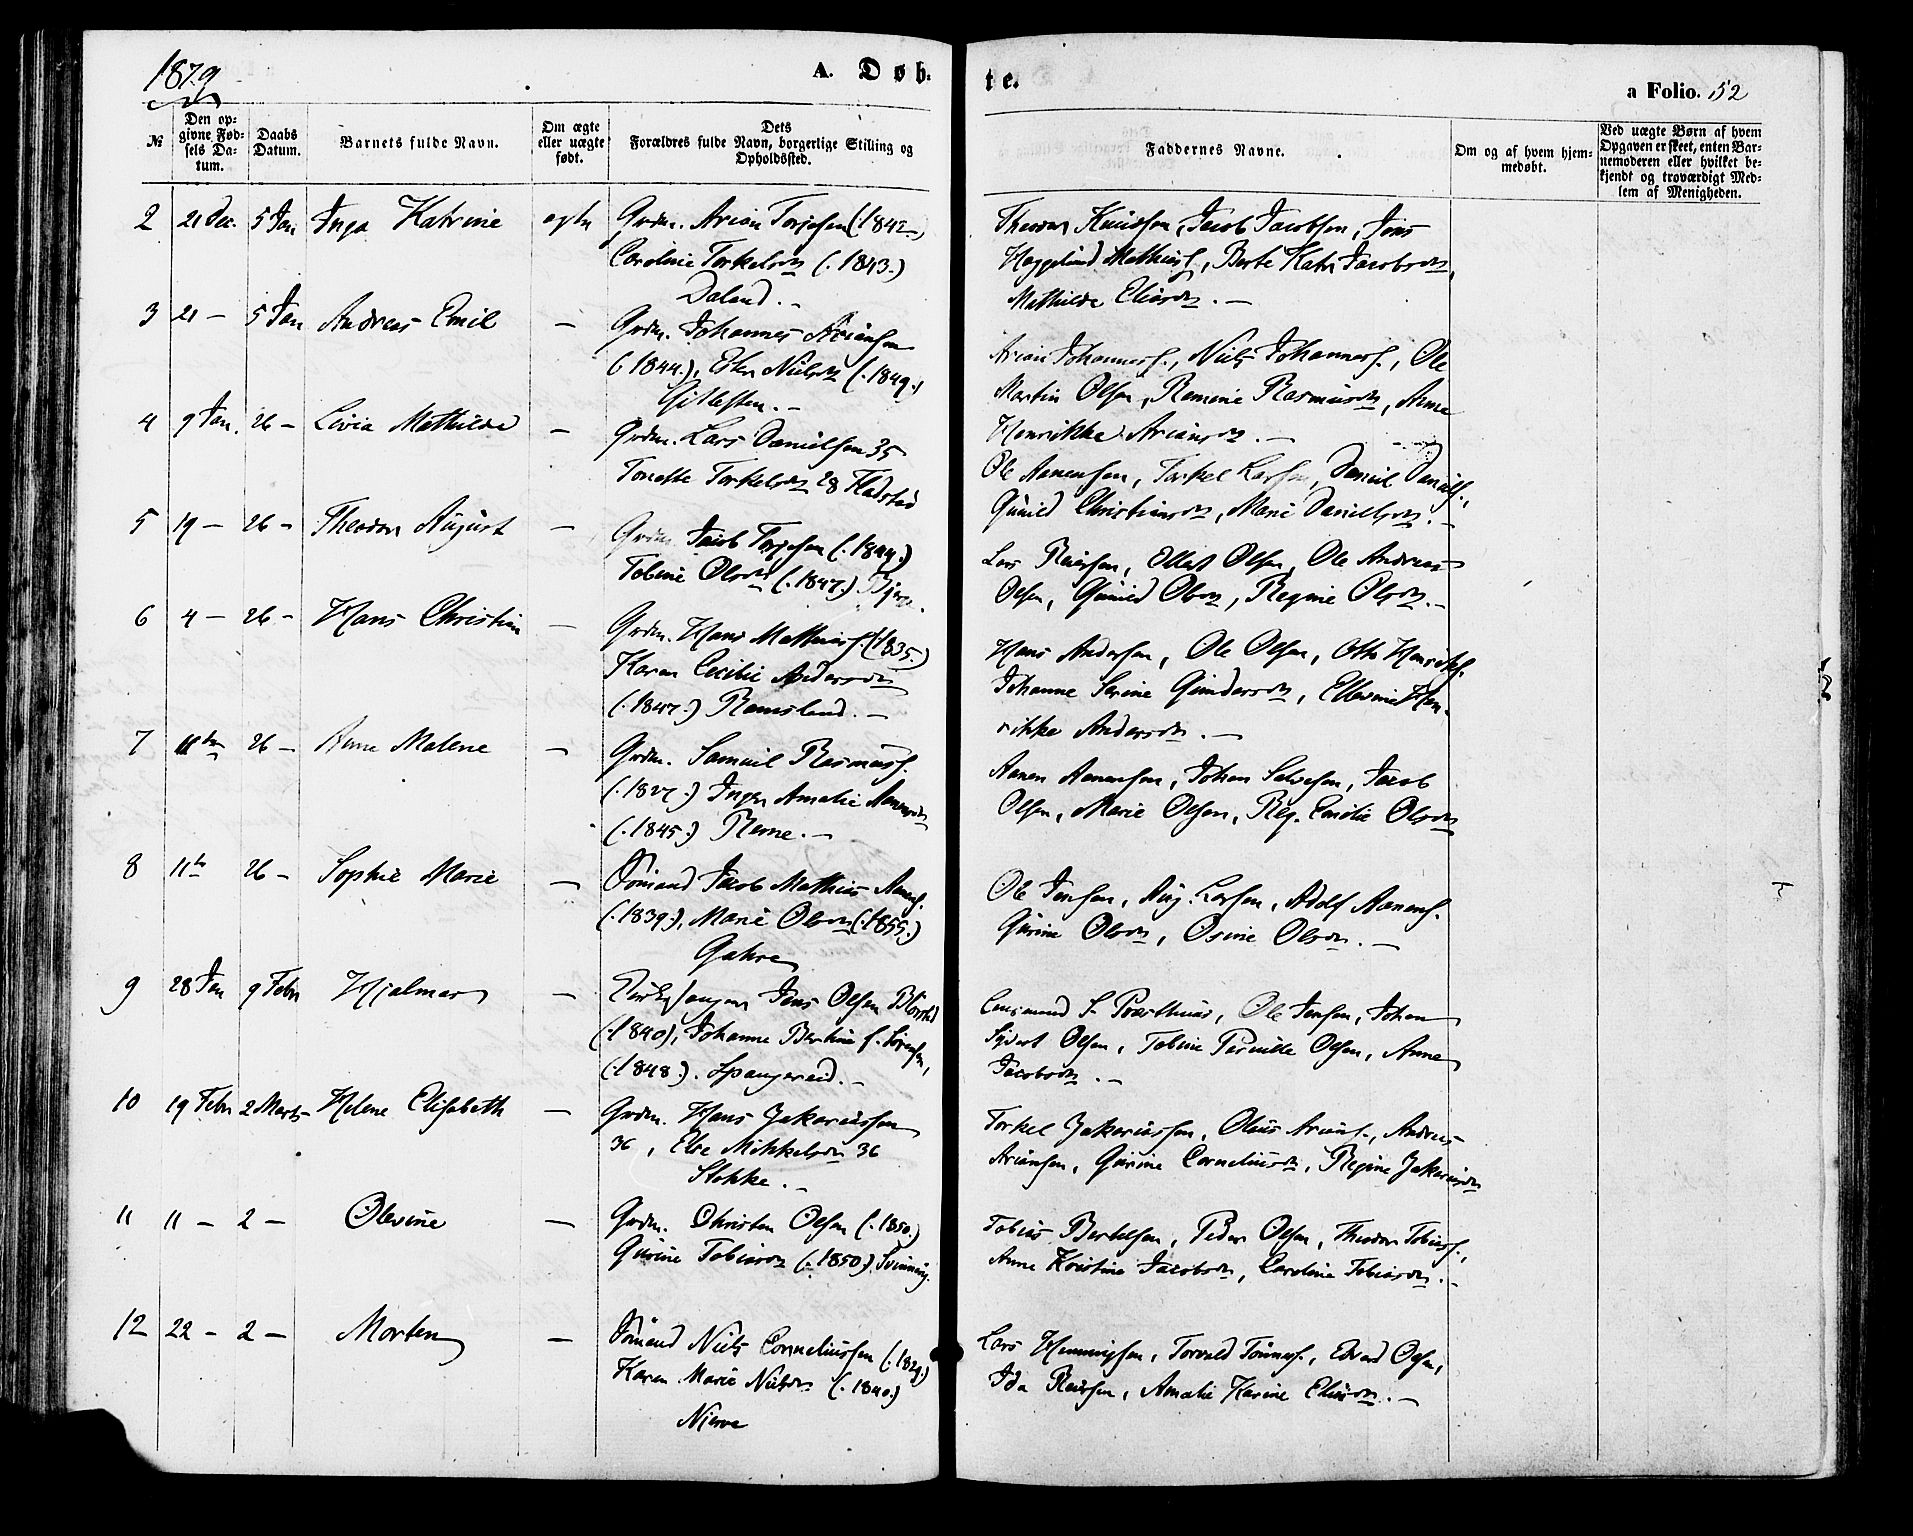 1879
A. Døb-
te.
a Folio. 52
№
Den op-
givne Fød-
sels Da-
tum.
Daabs
Datum.
Barnets fulde Navn.
Om ægte
eller uægte
født.
Dets
Forældres fulde Navn, borgerlige Stilling og
Opholdssted.
Faddernes Navne.
Om og af hvem hjem-
medøbt.
Ved uægte Børn af hvem
Opgaven er skeet, enten Bar-
nemoderen eller hvilket be-
kjendt og troværdigt Med-
lem af Menigheden.
2 21 Dec. 5 Jan Inga Katrine ægte Grdm. Arian Torjesen (1842)
Caroline Torkelsdn (.1843.)
Daland.-
Theodor Knudsen, Jacob Jacobsen, Jens
Heggelund Mathias, Berte Katr Jacobsdn,
Mathilde Eliasdn.-
3 21 - 5 Jan Andreas Emil - Grdm. Johannes Ariansen
(.1844.), Nielsdn (.1849.)
Arian Johannes., Niels Johannes., Ole
Martin Olsen, Ramine Rasmusdn, Anna
Henrikke Ariansdn.-
4 9 Jan. 26 - Livia Mathilde - Grdm. Lars Danielsen 35
Tonette Torkelsdn 28 Fladstad
Ole Aanensen, Torkel Larsen, Daniel Daniels.,
Gunild Christiansdn, Marie Danielsdn.-
5 19 - 26 - Theodor August - Grdm. Jacob Torjesen (.1844.)
Tobine Olsdn (.1847.)
Lars Reiersen, Ellert Olsen, Ole Andreas
Olsen, Gunild Olsdn, Regine Olsdn.-
6 4 - 26 - Hans Christian - Grdm. Hans Mathias. (.1835.)
Karen Cecilie Andersdn
(.1847.) Ramsland.-
Hans Andersen, Ole Olsen, Otto Henriks.
Johanne Serine Gundersdn, Ellevine Hen-
rikke Andersdn.-
7 26 - Anne Malene - Grdm. Samuel Rasmus.
(.1827.) Inger Amalie Aanensdn
(.1845.)
Aanen Aanensen, Johan Salvesen, Jacob
Olsen, Marie Olsen, Reg. Emilie Olsdn
8 11te 26 - Sophie Marie - Sømand Jacob Mathias Aanens.
(.1839.), Marie Olsdn (.1855.)
Gahre
Ole Jensen, Aug. Larsen, Adolf Aanens.
Gurine Olsdn, Osine Olsdn.-
9 28 Jan 9 Febr Hjalmar - Kirkesanger Jens Olsen
(.1840), Johanne Bertine f. Sørensen,
(.1848.). Spangereid.-
S. Poarthuus, Ole Jensen, Johan
Sivert Olsen, Tobine Pernille Olsen, Anne
Jacobsdn.-
10 19 Febr 2 Marts Helene Elisabeth - Grdm. Hans Zakariassen
36, Else Mikkelsdn 36
Stokke.-
Torkel Zakariassen, Olaus Arians., Andreas
Ariansen, Gurine Corneliusdn, Regine Zakariasdn
11 11 - 2 - Olevine - Grdm. Christen Olsen (.1850.)
Gurine Tobiasdn (.1850.) Svinning.
Tobias Bertelsen, Peder Olsen, Theodor Tobias.,
Anne Kristine Jacobsdn, Caroline Tobiasdn.-
12 22 - 2 - Morten - Sømand Niels Corneliussen (.1829.)
Karen Marie Nielsdn (.1840.)
Njerve
Lars Henningsen, Torvald Tønnes., Edvard Olsen,
Ida Reiersen, Amalie Karine Eliasdn.-